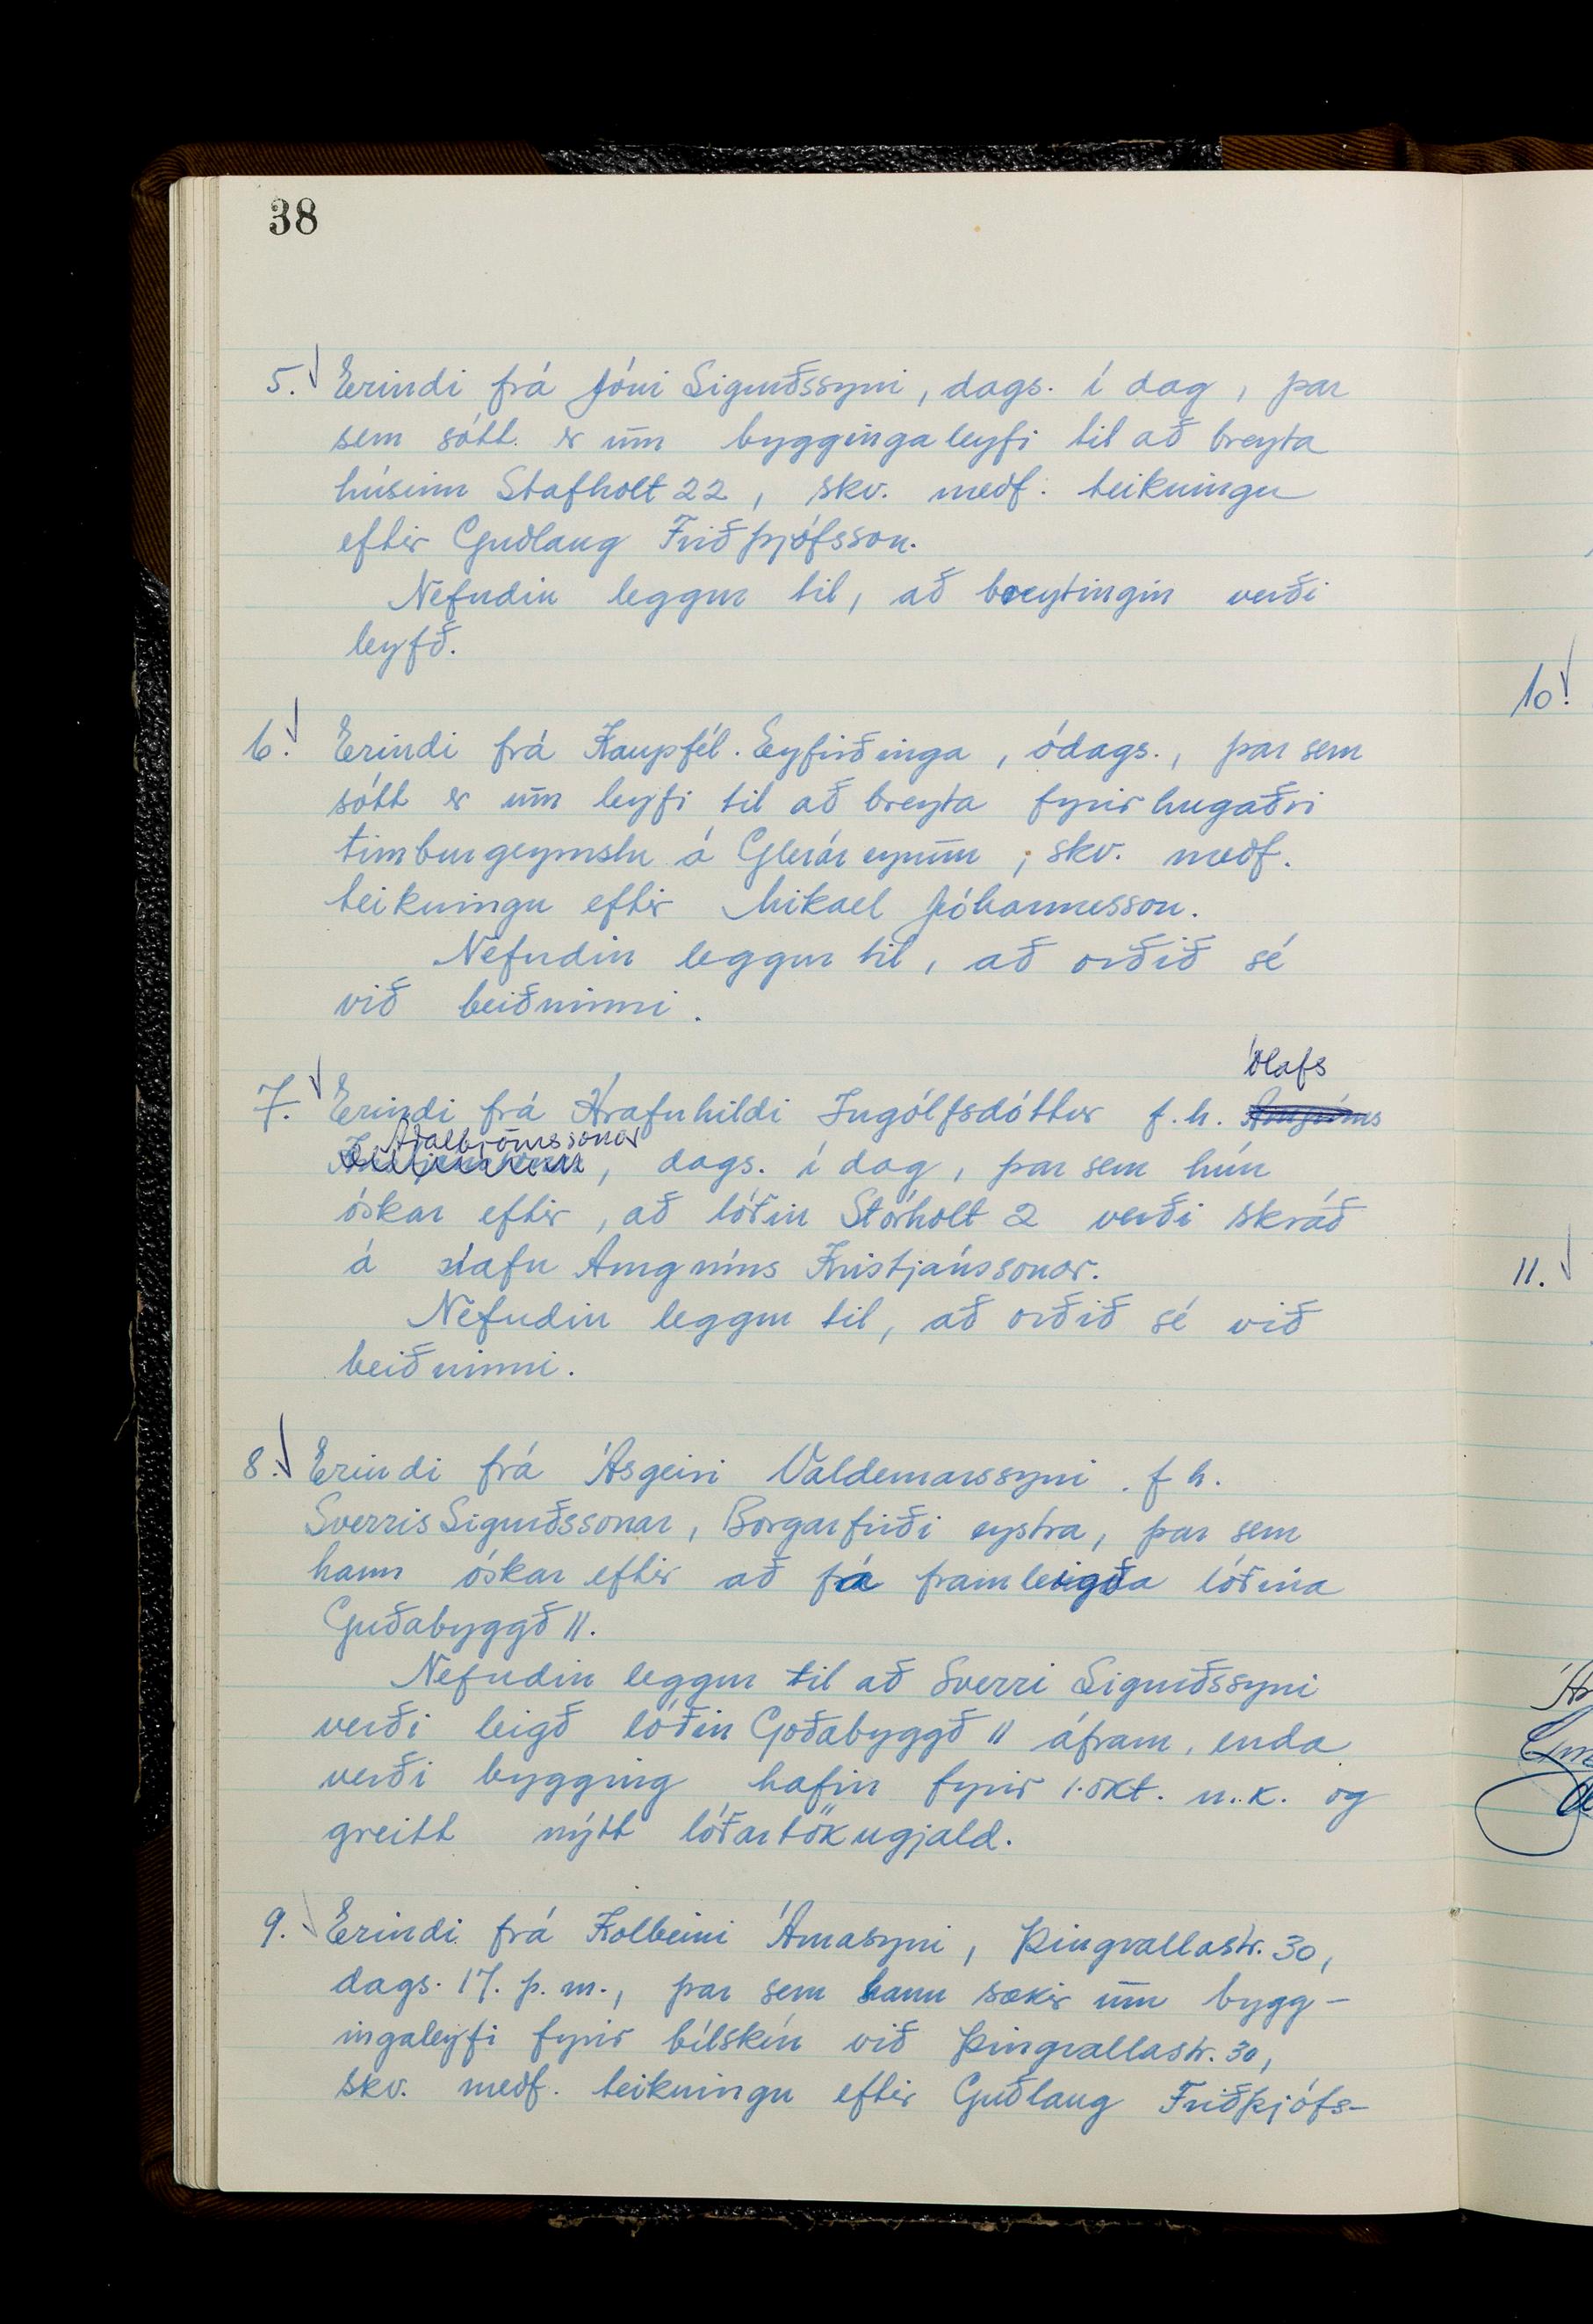 38
5. Erindi frá Jóni Sigurðssyni, dags. í dag, þar
sem sótt er um byggingaleyfi til að breyta
húsinu Stafholt 22, skv. meðf. teikningu
eftir Guðlaug Friðþjófsson.
Nefndin leggur til, að breytingin verði
leyfð.
6. Erindi frá Kaupfél. Eyfirðinga, ódags., þar sem
sótt er um leyfi til að breyta fyrirhugaðri
timburgeymslu á Gleráreyrum, skv. meðf.
teikningu eftir Mikael Jóhannesson.
Nefndin leggur til, að orðið sé
við beiðninni.
Ólafs
7. Erindi frá Hrafnhildi Ingólfsdóttur f.h. Arngríms
Aðalbjörnssonar
, dags. í dag, þar sem hún
óskar eftir, að lóðin Stórholt 2 verði skráð
á nafn Arngríms Kristjánssonar.
Nefndin leggur til, að orðið sé við
beiðninni.
8. Erindi frá Ásgeiri Valdemarssyni. f h.
Sverris Sigurðssonar, Borgarfirði eystra, þar sem
hann óskar eftir að fá framleigða lóðina
Goðabyggð 11.
Nefndin leggur til að Sverri Sigurðssyni
verði leigð lóðin Goðabyggð 11 áfram, enda
verði bygging hafin fyrir 1. okt. n.k. og
greitt nýtt lóðartökugjald.
9. Erindi frá Kolbeini Árnasyni, Þingvallastr. 30,
dags. 17. þ.m., þar sem hann sækir um bygg-
ingaleyfi fyrir bílskúr við Þingvallastr. 30,
skv. meðf. teikningu eftir Guðlaug Friðþjófs-
10.
11.